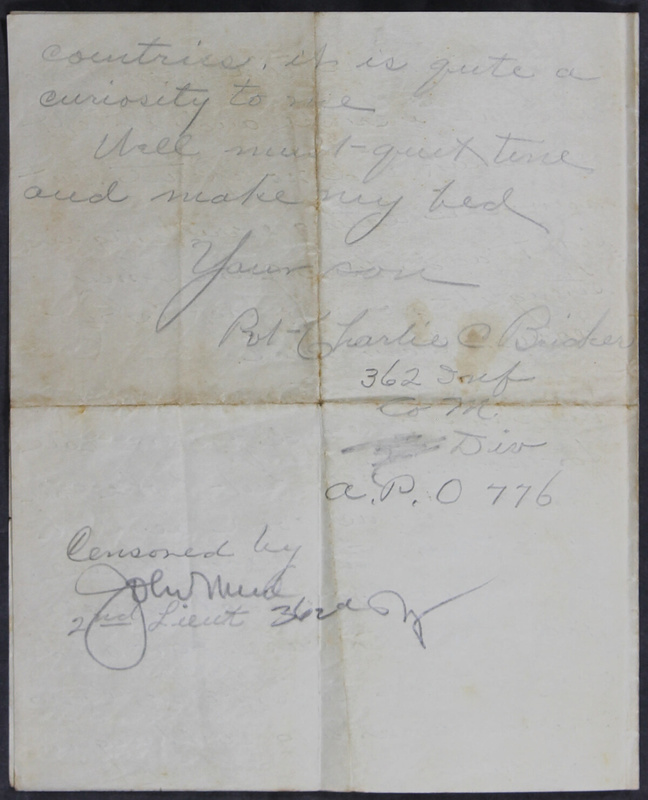 countries, it is qute a
curiosity to me
Well must quit time
and make my bed
Your son
Pvt Charlie C
362 Inf
Co M.
Div
A.P.O 776
Censored by
John
2nd Lieut 362nd